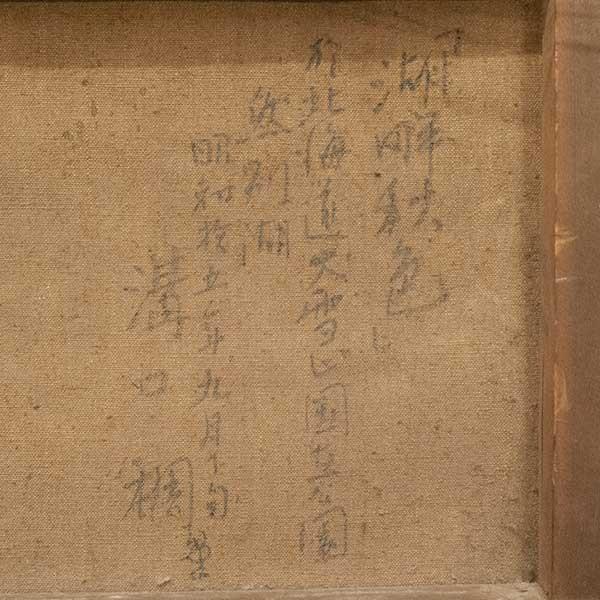 「湖畔秋色」
於北海道大雪山國立公園
然別湖
昭和拾五年九月下旬
溝口